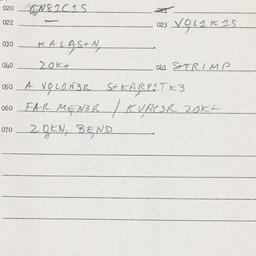 020 GN82C1S 021
022 — 023 VQL1K1S
030 KALAS+N,
040 20K+ 041 S+RIMP
050 A VQLQN3R S+KARP2TK3
060 FAR MEN3R / KVPP3R 20K+
070 2 QKN, BEND